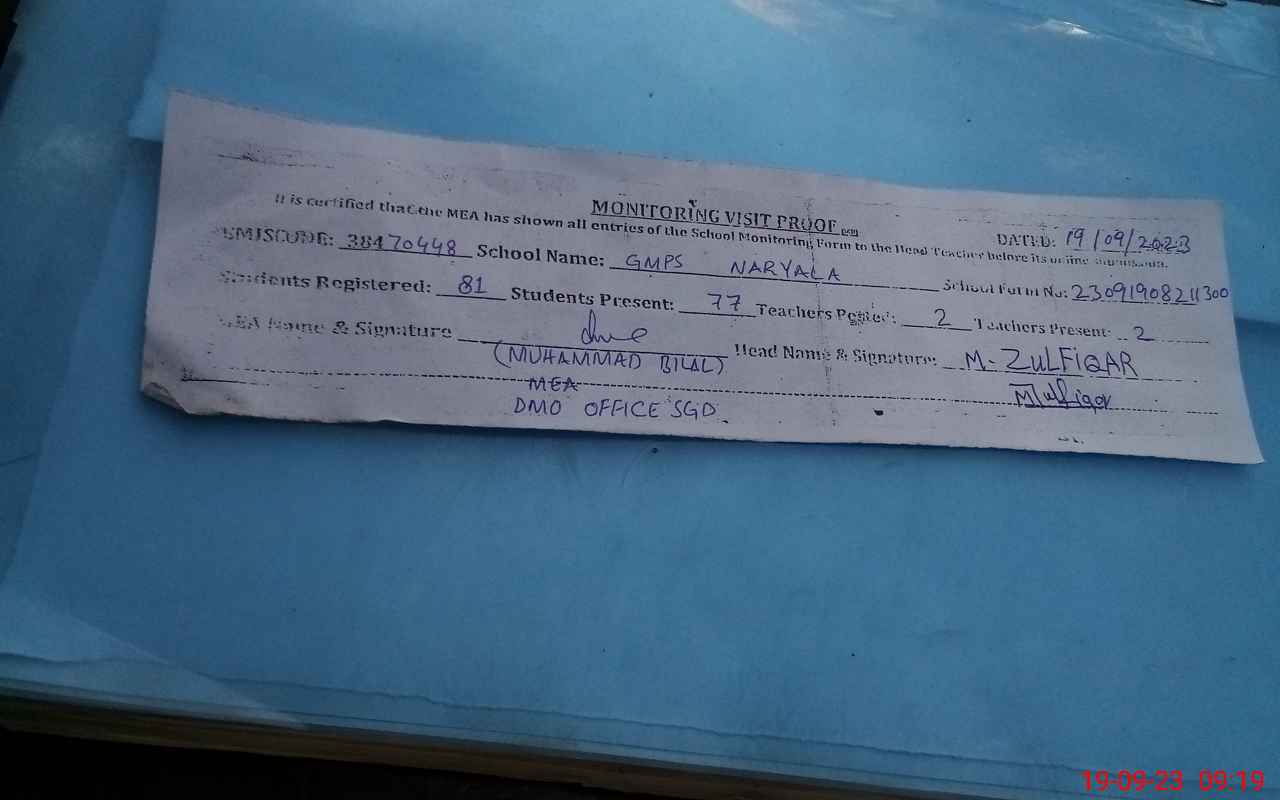 MONITORING VISIT PROOF
DATED: 19/09/2023
It is certified that the MEA has shown all entries of the School Monitoring Form to the Head Teacher before its online submission.
EMISCODE: 38470448 School Name: GMPS NARYALA School Form No: 23091908211300
Students Registered: 81 Students Present: 77 Teachers Posted: 2 Teachers Present: 2
MEA Name & Signature Head Name & Signature: M. ZULFIQAR
(MUHAMMAD BILAL)
MEA MZulfiqar
DMO OFFICE SGD
19-09-23 09:19